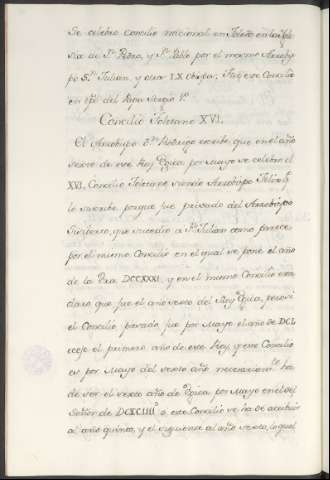 Se celebro Concilio nacional en Toledo en la Igle
sia de Sn. Pedro, y Sn. Pablo por el mismo Arzobis
po Sn. Julian, y otros LX Obispos; fue este Concilio
en tpô del Papa Sergio 1º.
Concilio Toletano XVI.
El Arzobispo Dn. Rodrigo escribe, que en el año
sexto de este Rey Egica, por Mayo se celebro el
XVI. Concilio Toletano siendo Arzobispo Felix, q
lo suscribe porque fue privado del Arzobispado
Sisiberto, que sucedio a Sn. Julian como parece
por el mismo Concilio en el qual se pone el año
de la Era DCCXXXI, y en el mismo Concilio esta
claro que fue el año sexto del Rey Egica, pero si
el Concilio pasado fue por Mayo el año de DCL
el primero año de este Rey, y este Concilio
es por Mayo del sexto año, necesariamte. ha
de ser el sexto año de Egica por Mayo en el del
Señor de DCXCIIIIº o este Concilio se ha de atribuir
al año quinto, y el siguiente al año sexto, lo qual